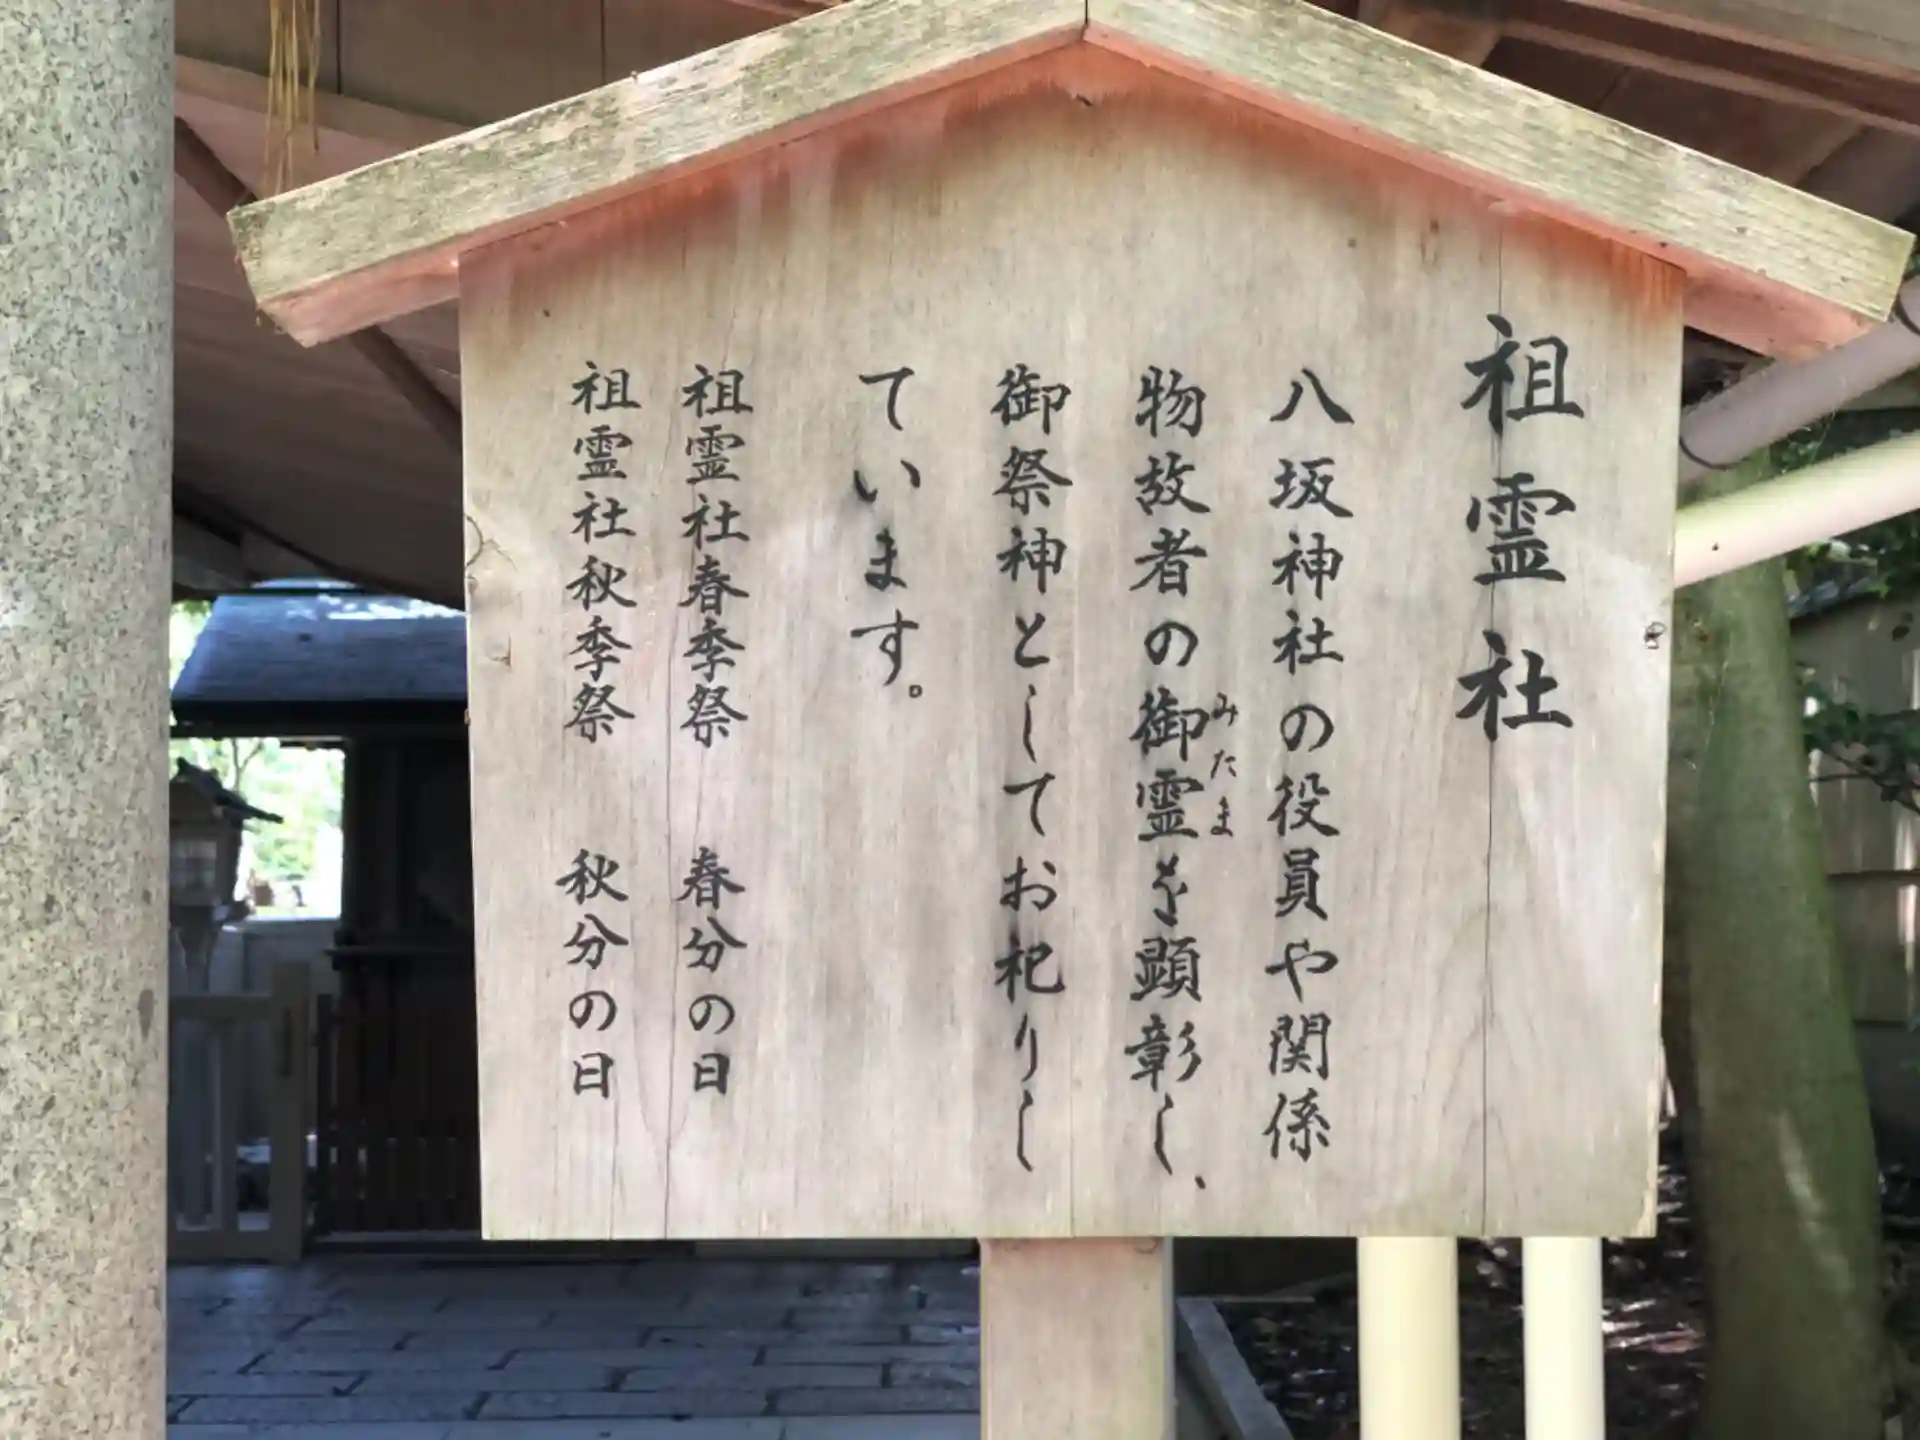 祖霊社
八坂神社の役員や関係
物故者の御霊を顕彰し、
みたま
御祭神としてお祀りし
ています。
祖霊社春季祭　春分の日
祖霊社秋季祭　秋分の日